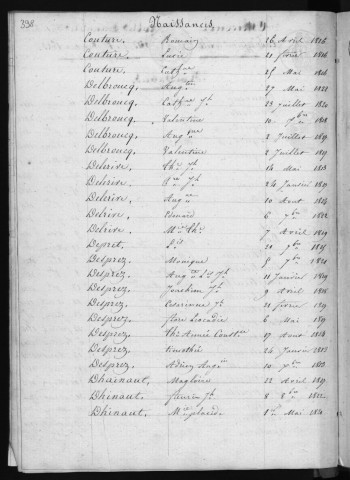 338. Naissances
Couture, Romain 26 Avril 1816
Couture Lucie 21 février 1816
Couture Cathne 25 Mai 1816
Delbroucq Augtin 27 Mai 1821
Delbroucq, Cathne Jh 23 juillet 1820
Delbroucq, Valentine 10 7bre 1818
Delbroucq, Augtine 2 Juillet 1819
Delbroucq, Valentine 2 Juillet 1819
Delrive, Jh 14 Mai 1813
Delrive, Jh 24 Janvier 1819
Delrive, Augtin 10 Aout 1814
Delrive, Edouard 6 7bre 1812
Delrive, Mie 7 Avril 1819
Depret, Ls 20 7bre
Desprez Monique 8 7bre
Desprez, Augtin Ls Jh 11 Janvier 1819
Desprez, Joachim Jh 9 Avril 1818
Desprez Césarinne Jh 21 février 1819
Desprez, flore Léocadie 6 Mai 1819
Desprez Aimée Constce 19 Aout 1814
Desprez timothé 24 Janvier 1813
Desprez, Augtin 10 7bre 1813
Dhainaut, Magloire 22 Avril 1819
Dhinaut, fleurice Jh 8 8bre 1812
Dhinaut, Mie placide 1er Mai